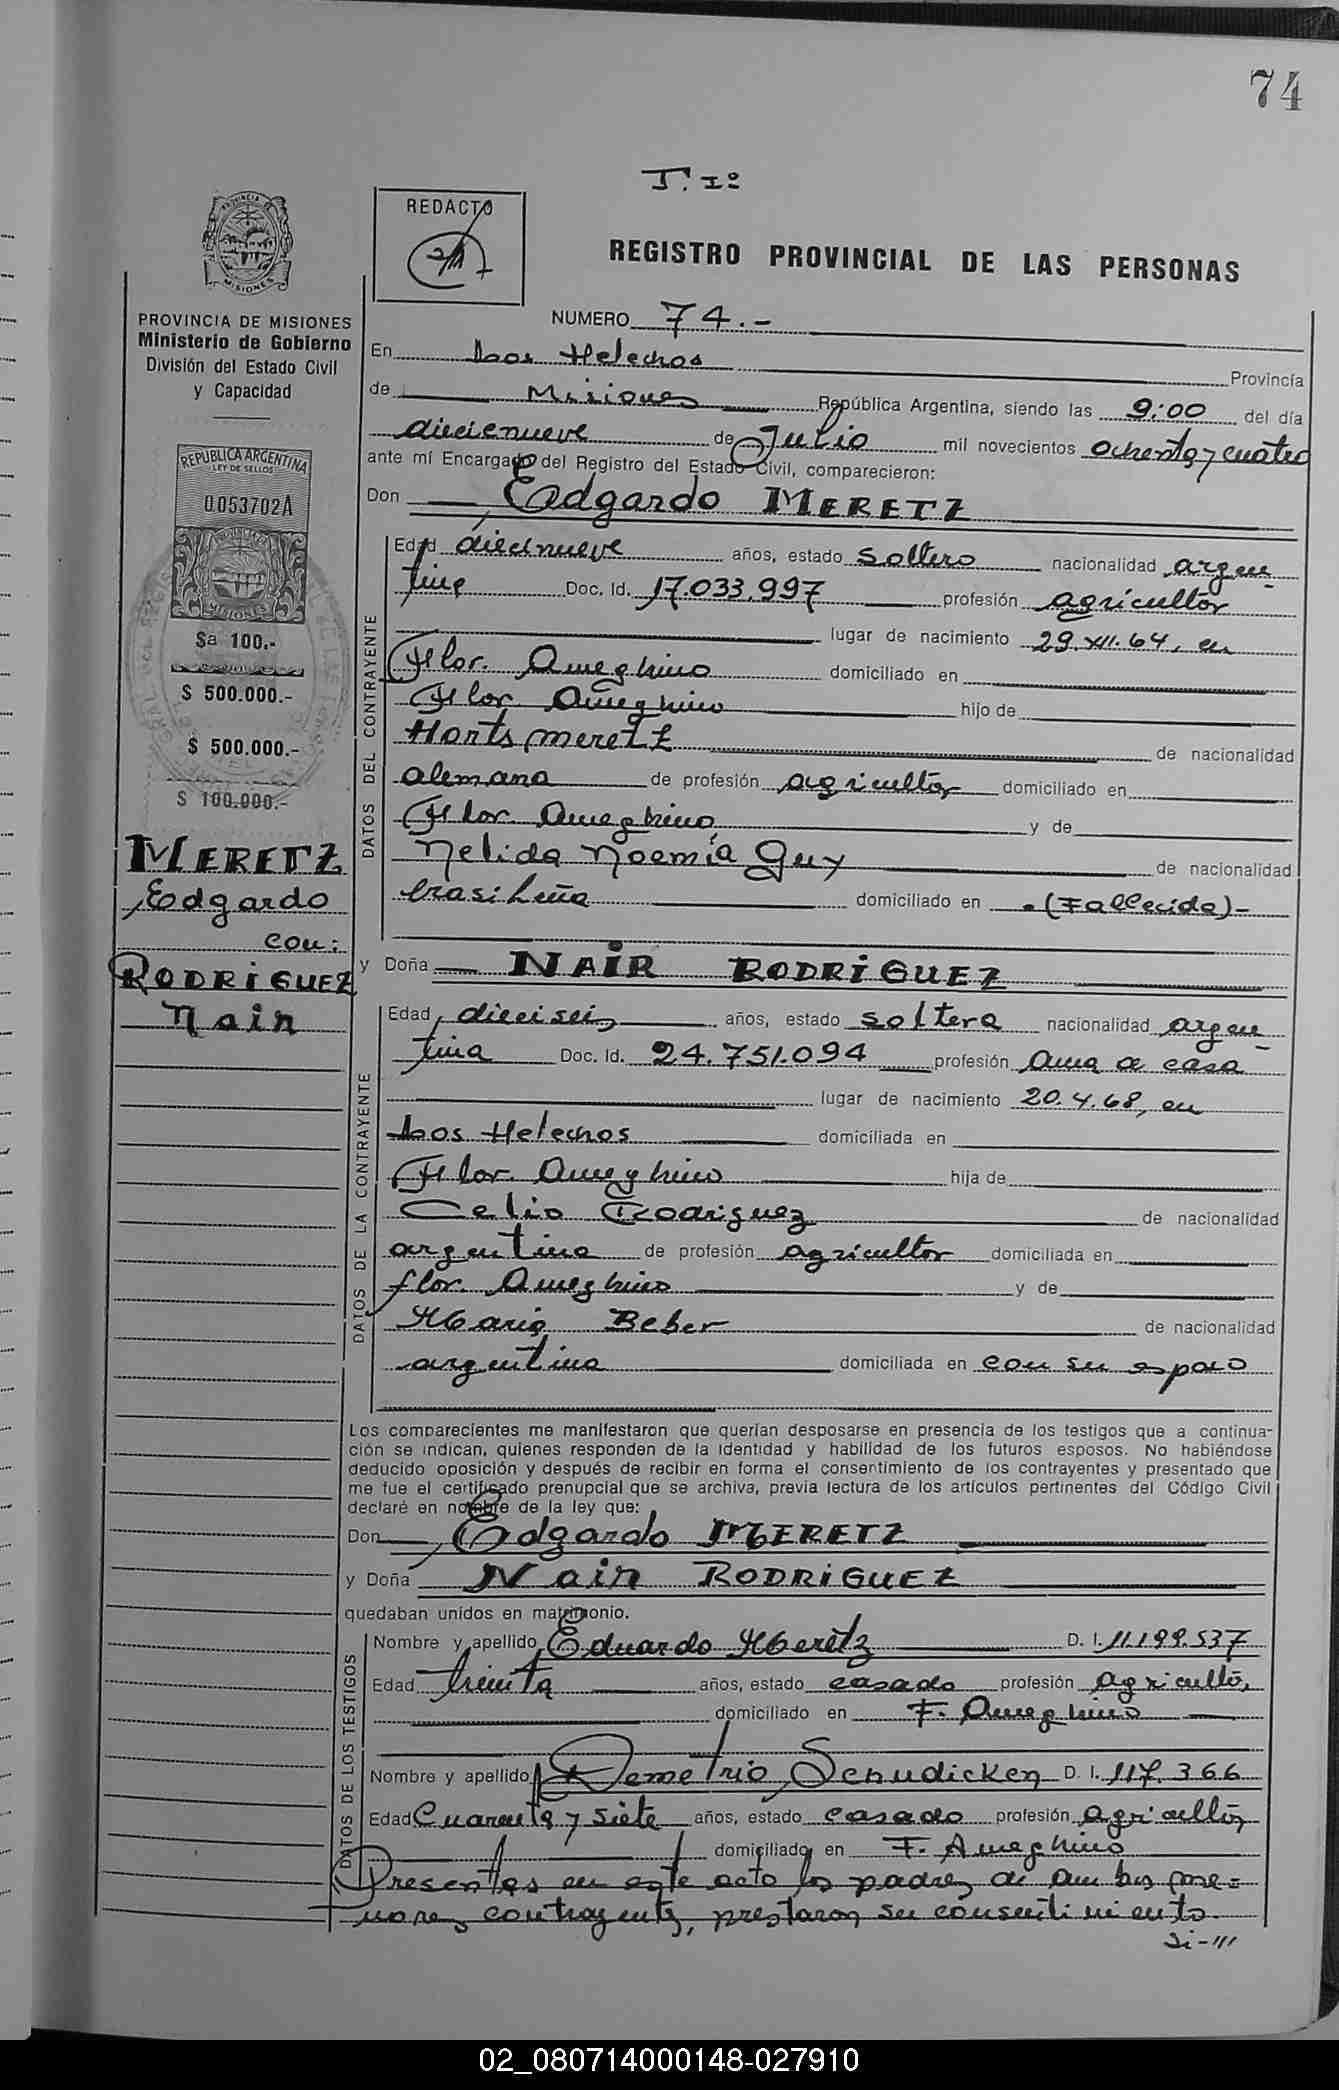 74
T. Iº
REDACTO
REGISTRO PROVINCIAL DE LAS PERSONAS
PROVINCIA DE MISIONES
Ministerio de Gobierno
División del Estado Civil
y Capacidad
REPUBLICA ARGENTINA
LEY DE SELLOS
0.053702A
MISIONES
$a 100.-
$ 500.000.-
$ 500.000.-
$ 100.000.-
MERETZ
Edgardo
con:
RODRIGUEZ
Nair
NUMERO 74.-
En Los Helechos Provincia
de Misiones República Argentina, siendo las 9:00 del día
diecienueve de Julio mil novecientos ochenta y cuatro
ante mí Encargado del Registro del Estado Civil, comparecieron:
Don Edgardo MERETZ
DATOS DEL CONTRAYENTE
Edad diecinueve años, estado soltero nacionalidad argen-
tina Doc. Id. 17.033.997 profesión agricultor
lugar de nacimiento 29.XII.64, en
Flor. Ameghino domiciliado en
Flor. Ameghino hijo de
Hants Meretz de nacionalidad
alemana de profesión agricultor domiciliado en
Flor. Ameghino y de
Nelida Noemía Guy de nacionalidad
brasileña domiciliado en (Fallecida)-
y Doña NAIR RODRIGUEZ
DATOS DE LA CONTRAYENTE
Edad dieciseis años, estado soltera nacionalidad argen-
tina Doc. Id. 24.751.094 profesión Ama de casa
lugar de nacimiento 20.4.68, en
Los Helechos domiciliada en
Flor. Ameghino hija de
Celio Rodriguez de nacionalidad
argentina de profesión agricultor domiciliada en
flor. Ameghino y de
Maria Beber de nacionalidad
argentina domiciliada en con su esposo
Los comparecientes me manifestaron que querían desposarse en presencia de los testigos que a continua-
ción se indican, quienes responden de la identidad y habilidad de los futuros esposos. No habiéndose
deducido oposición y después de recibir en forma el consentimiento de los contrayentes y presentado que
me fue el certificado prenupcial que se archiva, previa lectura de los artículos pertinentes del Código Civil
declaré en nombre de la ley que:
Don Edgardo MERETZ
y Doña Nair RODRIGUEZ
quedaban unidos en matrimonio.
DATOS DE LOS TESTIGOS
Nombre y apellido Eduardo Meretz D. I. 11.199.537
Edad treinta años, estado casado profesión agricultor,
domiciliado en F. Ameghino
Nombre y apellido Demetrio Schudicken D. I. 117.366
Edad Cuarenta y siete años, estado casado profesión agricultor
domiciliado en F. Ameghino
Presentes en este acto los padres de ambos
contrayentes, prestaron su consentimiento.
02_080714000148-027910